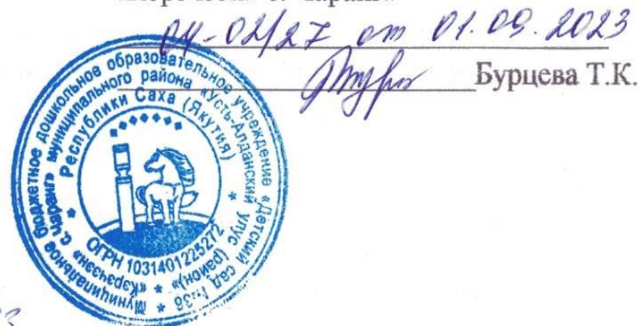 04-02/27 от 01.09.2023
Бурцева Т.К.
Муниципальное бюджетное дошкольное образовательное учреждение «Детский сад №36
«Кэрэчээнэ» с. Чаранг» муниципального района «Усть-Алданский улус (район)»
Республики Саха (Якутия)
ОГРН 1031401225272